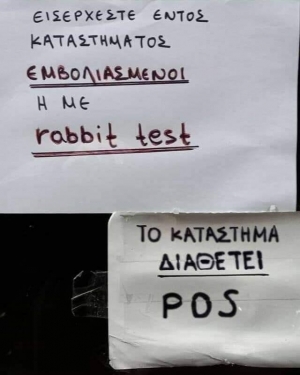 ΕΙΣΕΡΧΕΣΤΕ ΕΝΤΟΣ
ΚΑΤΑΣΤΗΜΑΤΟΣ
ΕΜΒΟΛΙΑΣΜΕΝΟΙ
Η ΜΕ
rabbit test
ΤΟ ΚΑΤΑΣΤΗΜΑ
ΔΙΑΘΕΤΕΙ
POS